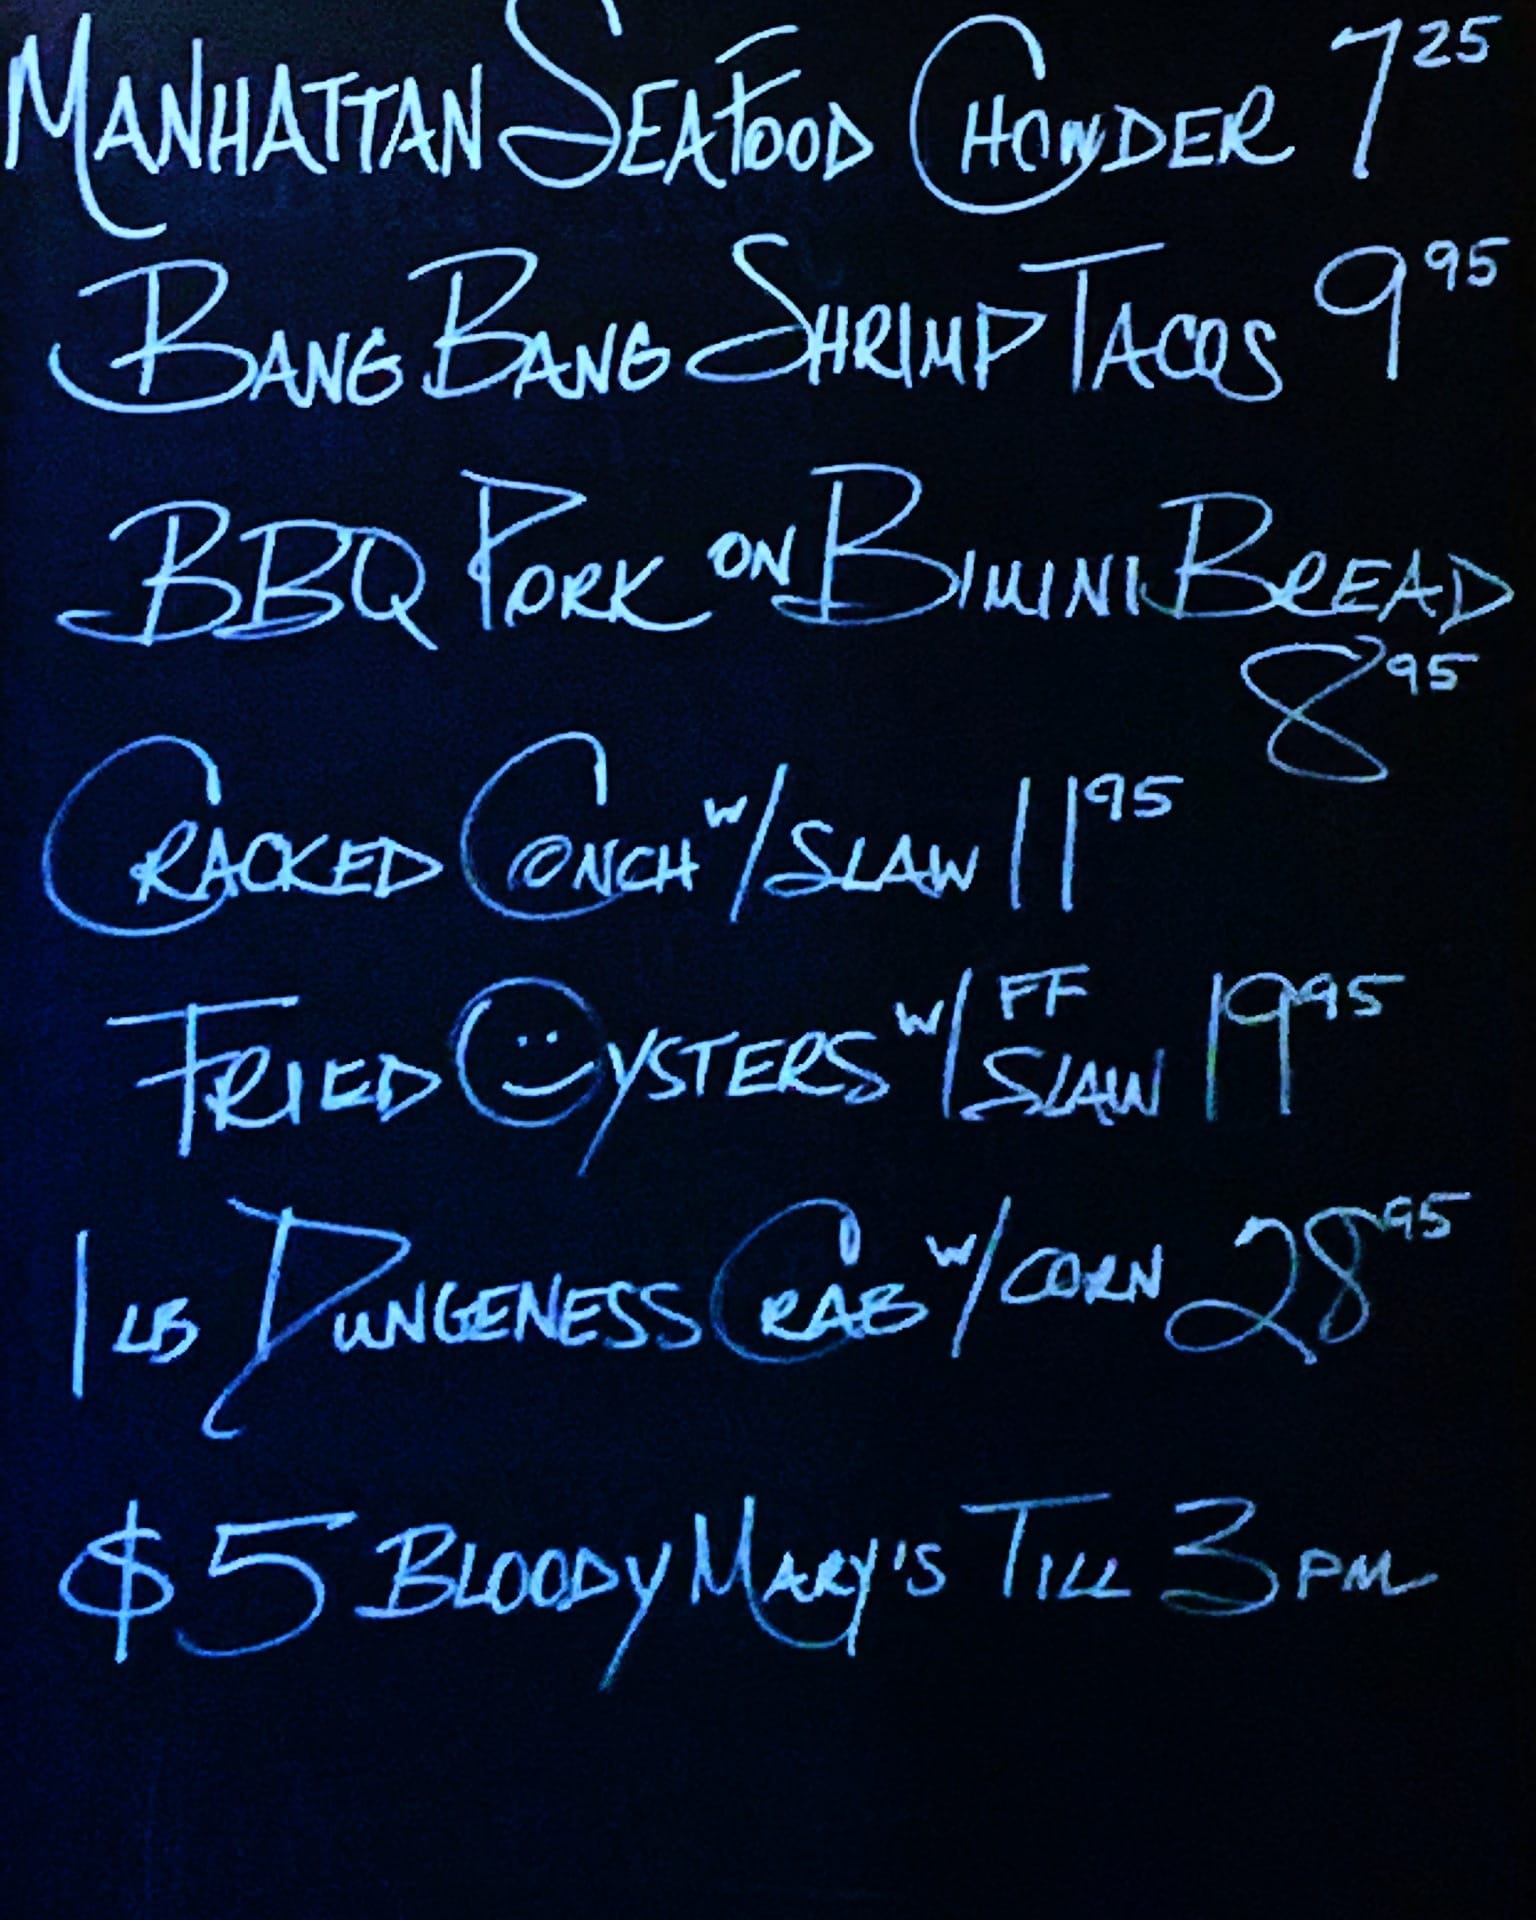 MANHATTAN SEAFOOD CHOWDER 7 25
BANG BANG SHRIMP TACOS 9 95
BBQ PORK ON BIMINI BREAD
8 95
CRACKED CONCH W/ SLAW 11 95
FRIED OYSTERS W/ FF SLAW 19 95
1 LB DUNGENESS CRAB W/ CORN 28 95
$5 BLOODY MARY'S TILL 3 PM